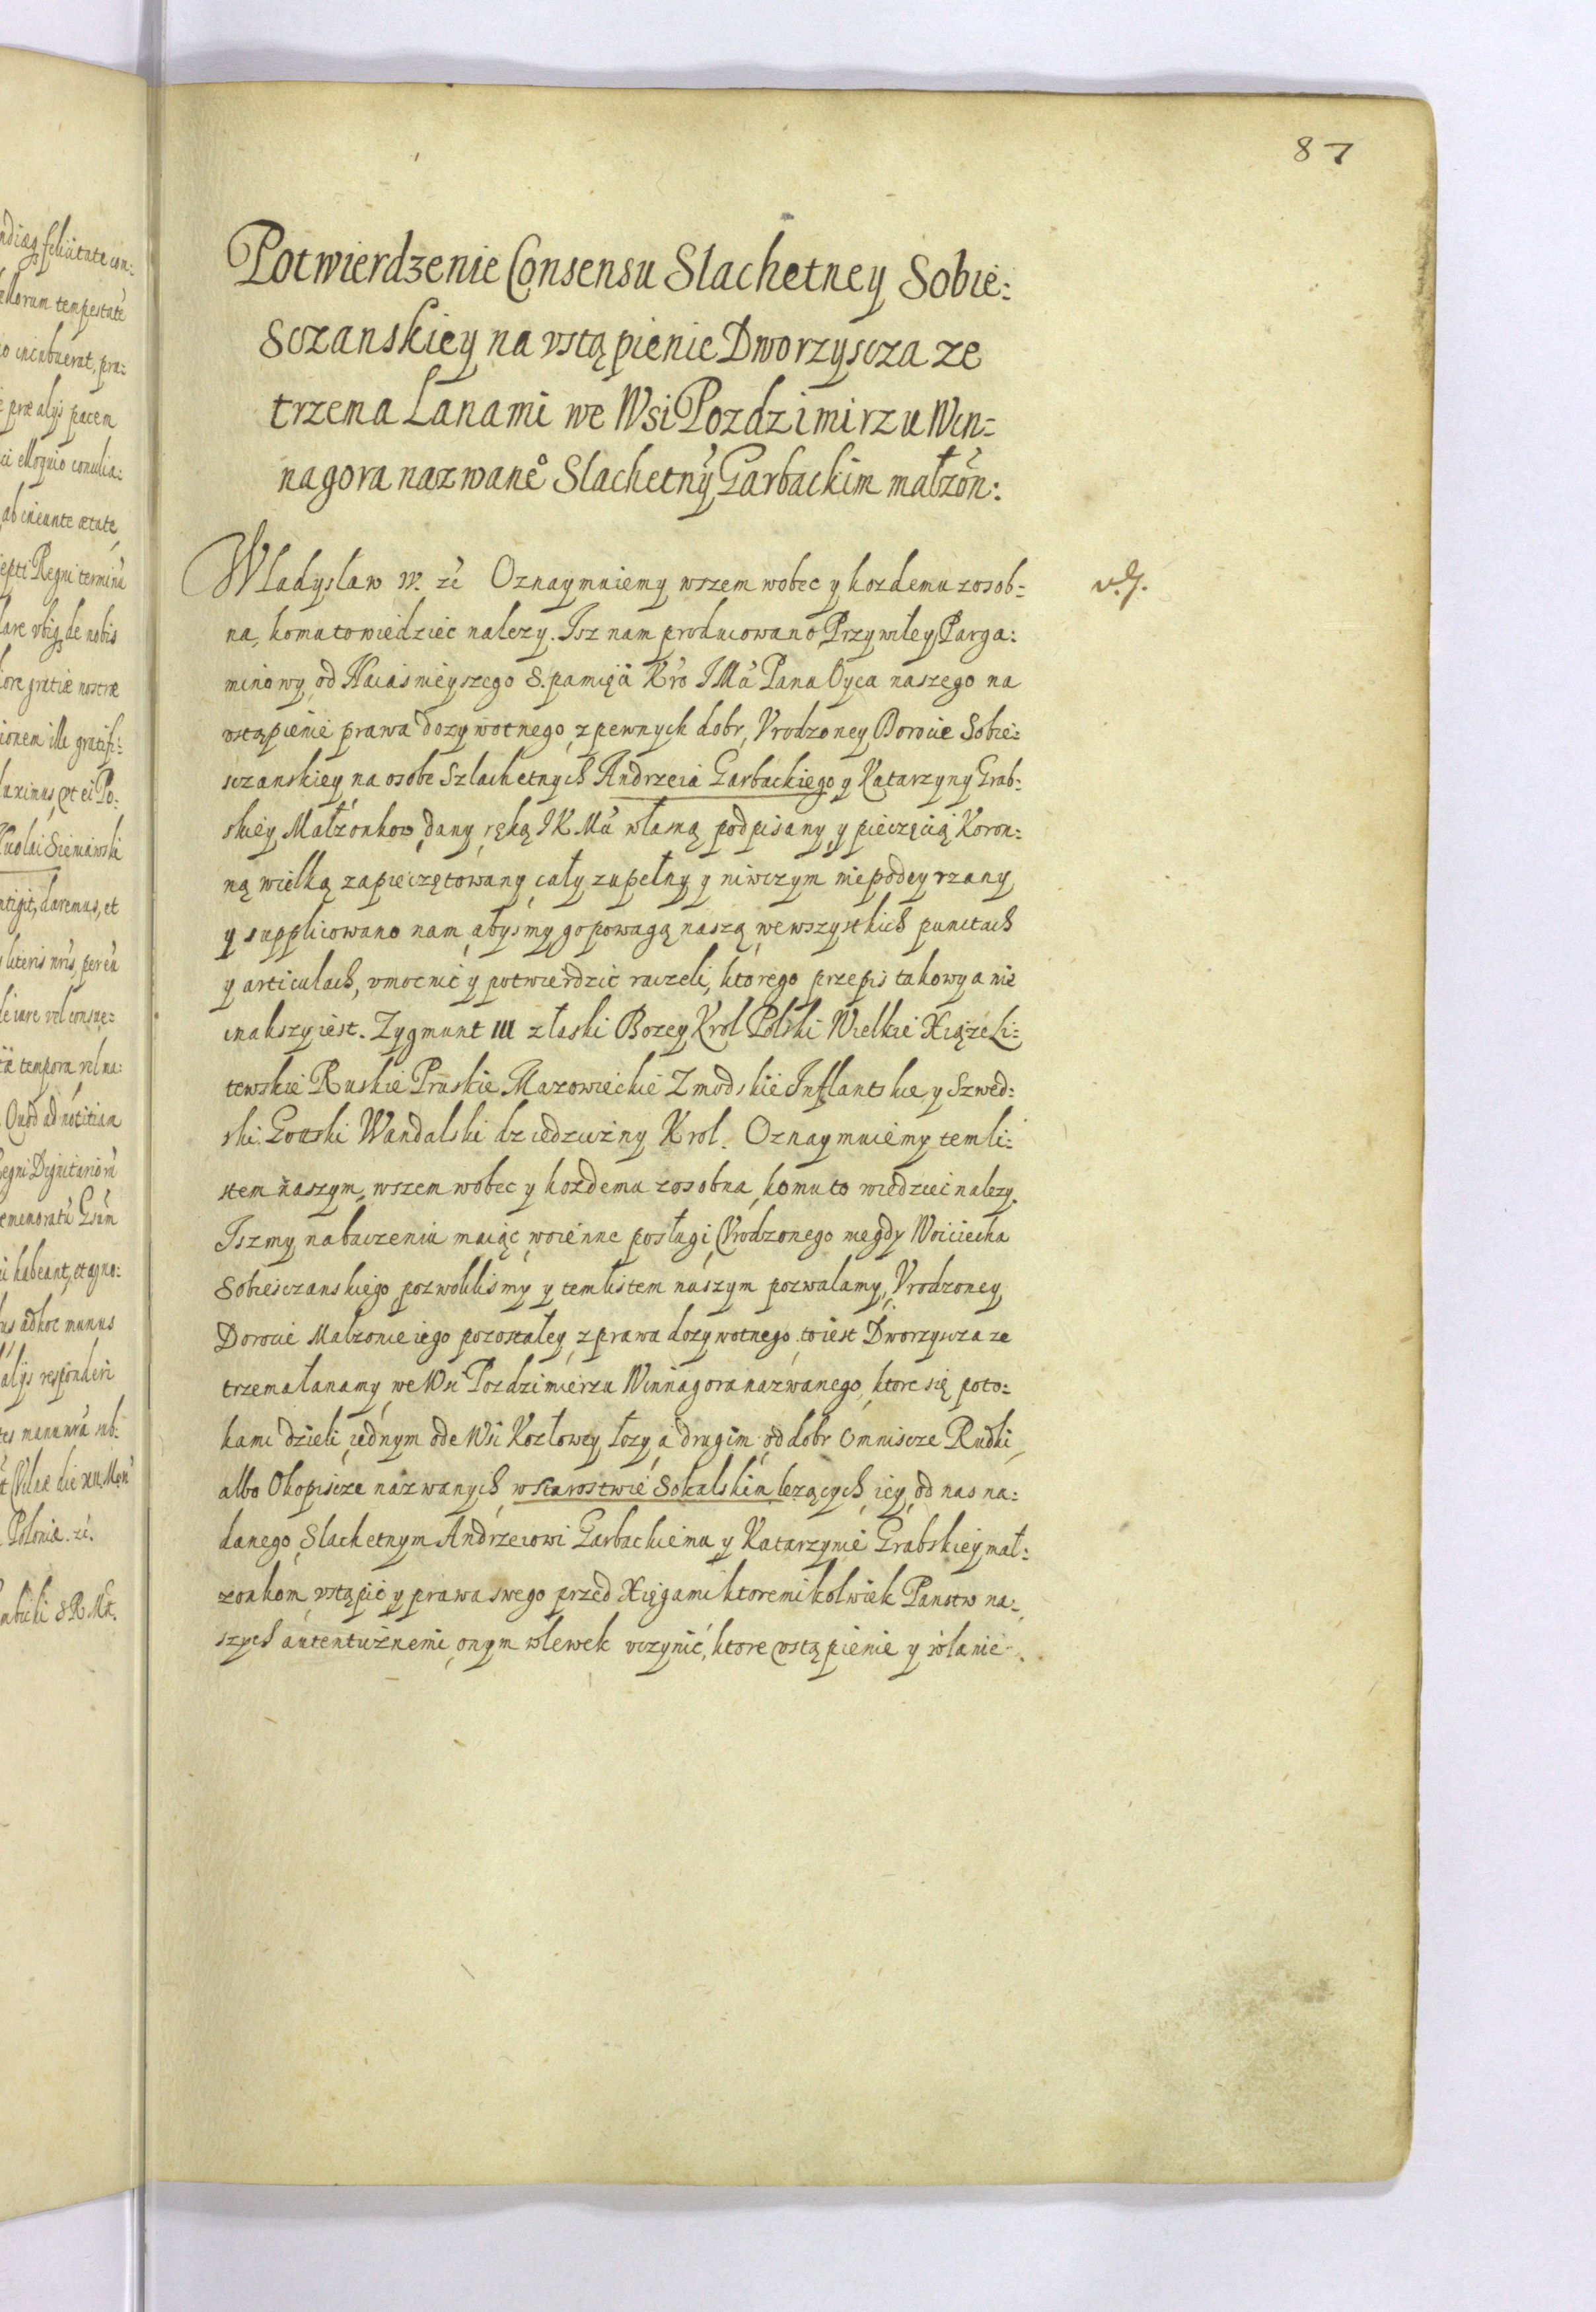 87
Potwierdzenie Consensu Slachetney Sobie:
sczanskiey na vstąpienie Dworzyscza ze
trzema Lanami we Wsi Pozdzimirzu Win=
nagora nazwane° Slachetny̆ Garbackim małzŏn:
Władysław IV. zc̃ Oznaymuiemy wszem wobec y kozdemu zosob=
v. J.
na, komu to wiedziec nalezy. Isz nam producowano Przywiley Parga:
minowy od Naiasnieyszego S. pamięci Kro IMci Pana Oyca naszego na
vstąpienie prawa dozywotnego, z pewnych dobr, Vrodzoney Dorocie Sobie=
sczanskiey na osobe Szlachetnych Andrzeia Garbackiego y Katarzyny Grab=
skiey Małzonkow, dany, ręką IKMci własną podpisany, y pieczęcią Koron=
ną wielką zapieczętowany, cały zupełny y niwczym niepodeyrzany
y supplicowano nam, abysmy go powagą naszą, we wszystkich punctach
y articulach, vmocnić y potwierdzić raczeli, ktorego przepis takowy a nie
inakszy iest. Zygmunt III z łaski Bozey Krol Polski Wielkie Xiąże Li=
tewskie Ruskie Pruskie Mazowieckie Zmodskie Inflantskie y Szwed=
ski Gotski Wandalski dziedziczny Krol. Oznaymuiemy tem li=
stem naszym, wszem wobec y kozdemu zosobna, komu to wiedziec nalezy.
Iszmy na baczeniu maiąc, woienne posługi, Vrodzonego niegdy Woiciecha
Sobiesczanskiego pozwoliliśmy y tem listem naszym pozwalamy, Vrodzoney
Dorocie Małzonce iego pozostałey, z prawa dozywotnego, to iest Dworzyscza ze
trzema łanamy, we Wsi Pozdzimierzu Winnagora nazwanego, ktore się poto=
kami dzieli, iednym ode Wsi Kozłowey łozy, a drugim, od dobr Omniscze Rudki,
albo Okopiscze nazwanych, w Starostwie Sokalskim lezących, iey, od nas na=
danego, Slachetnym Andrzeiowi Garbackiemu y Katarzynie Grabskiey, mał=
zonkom, vstąpić y prawa swego przed Xięgami ktoremikolwiek Panstw na=
szych autentucznemi, onym wlewek vczynić, ktore vstąpienie y wlanie